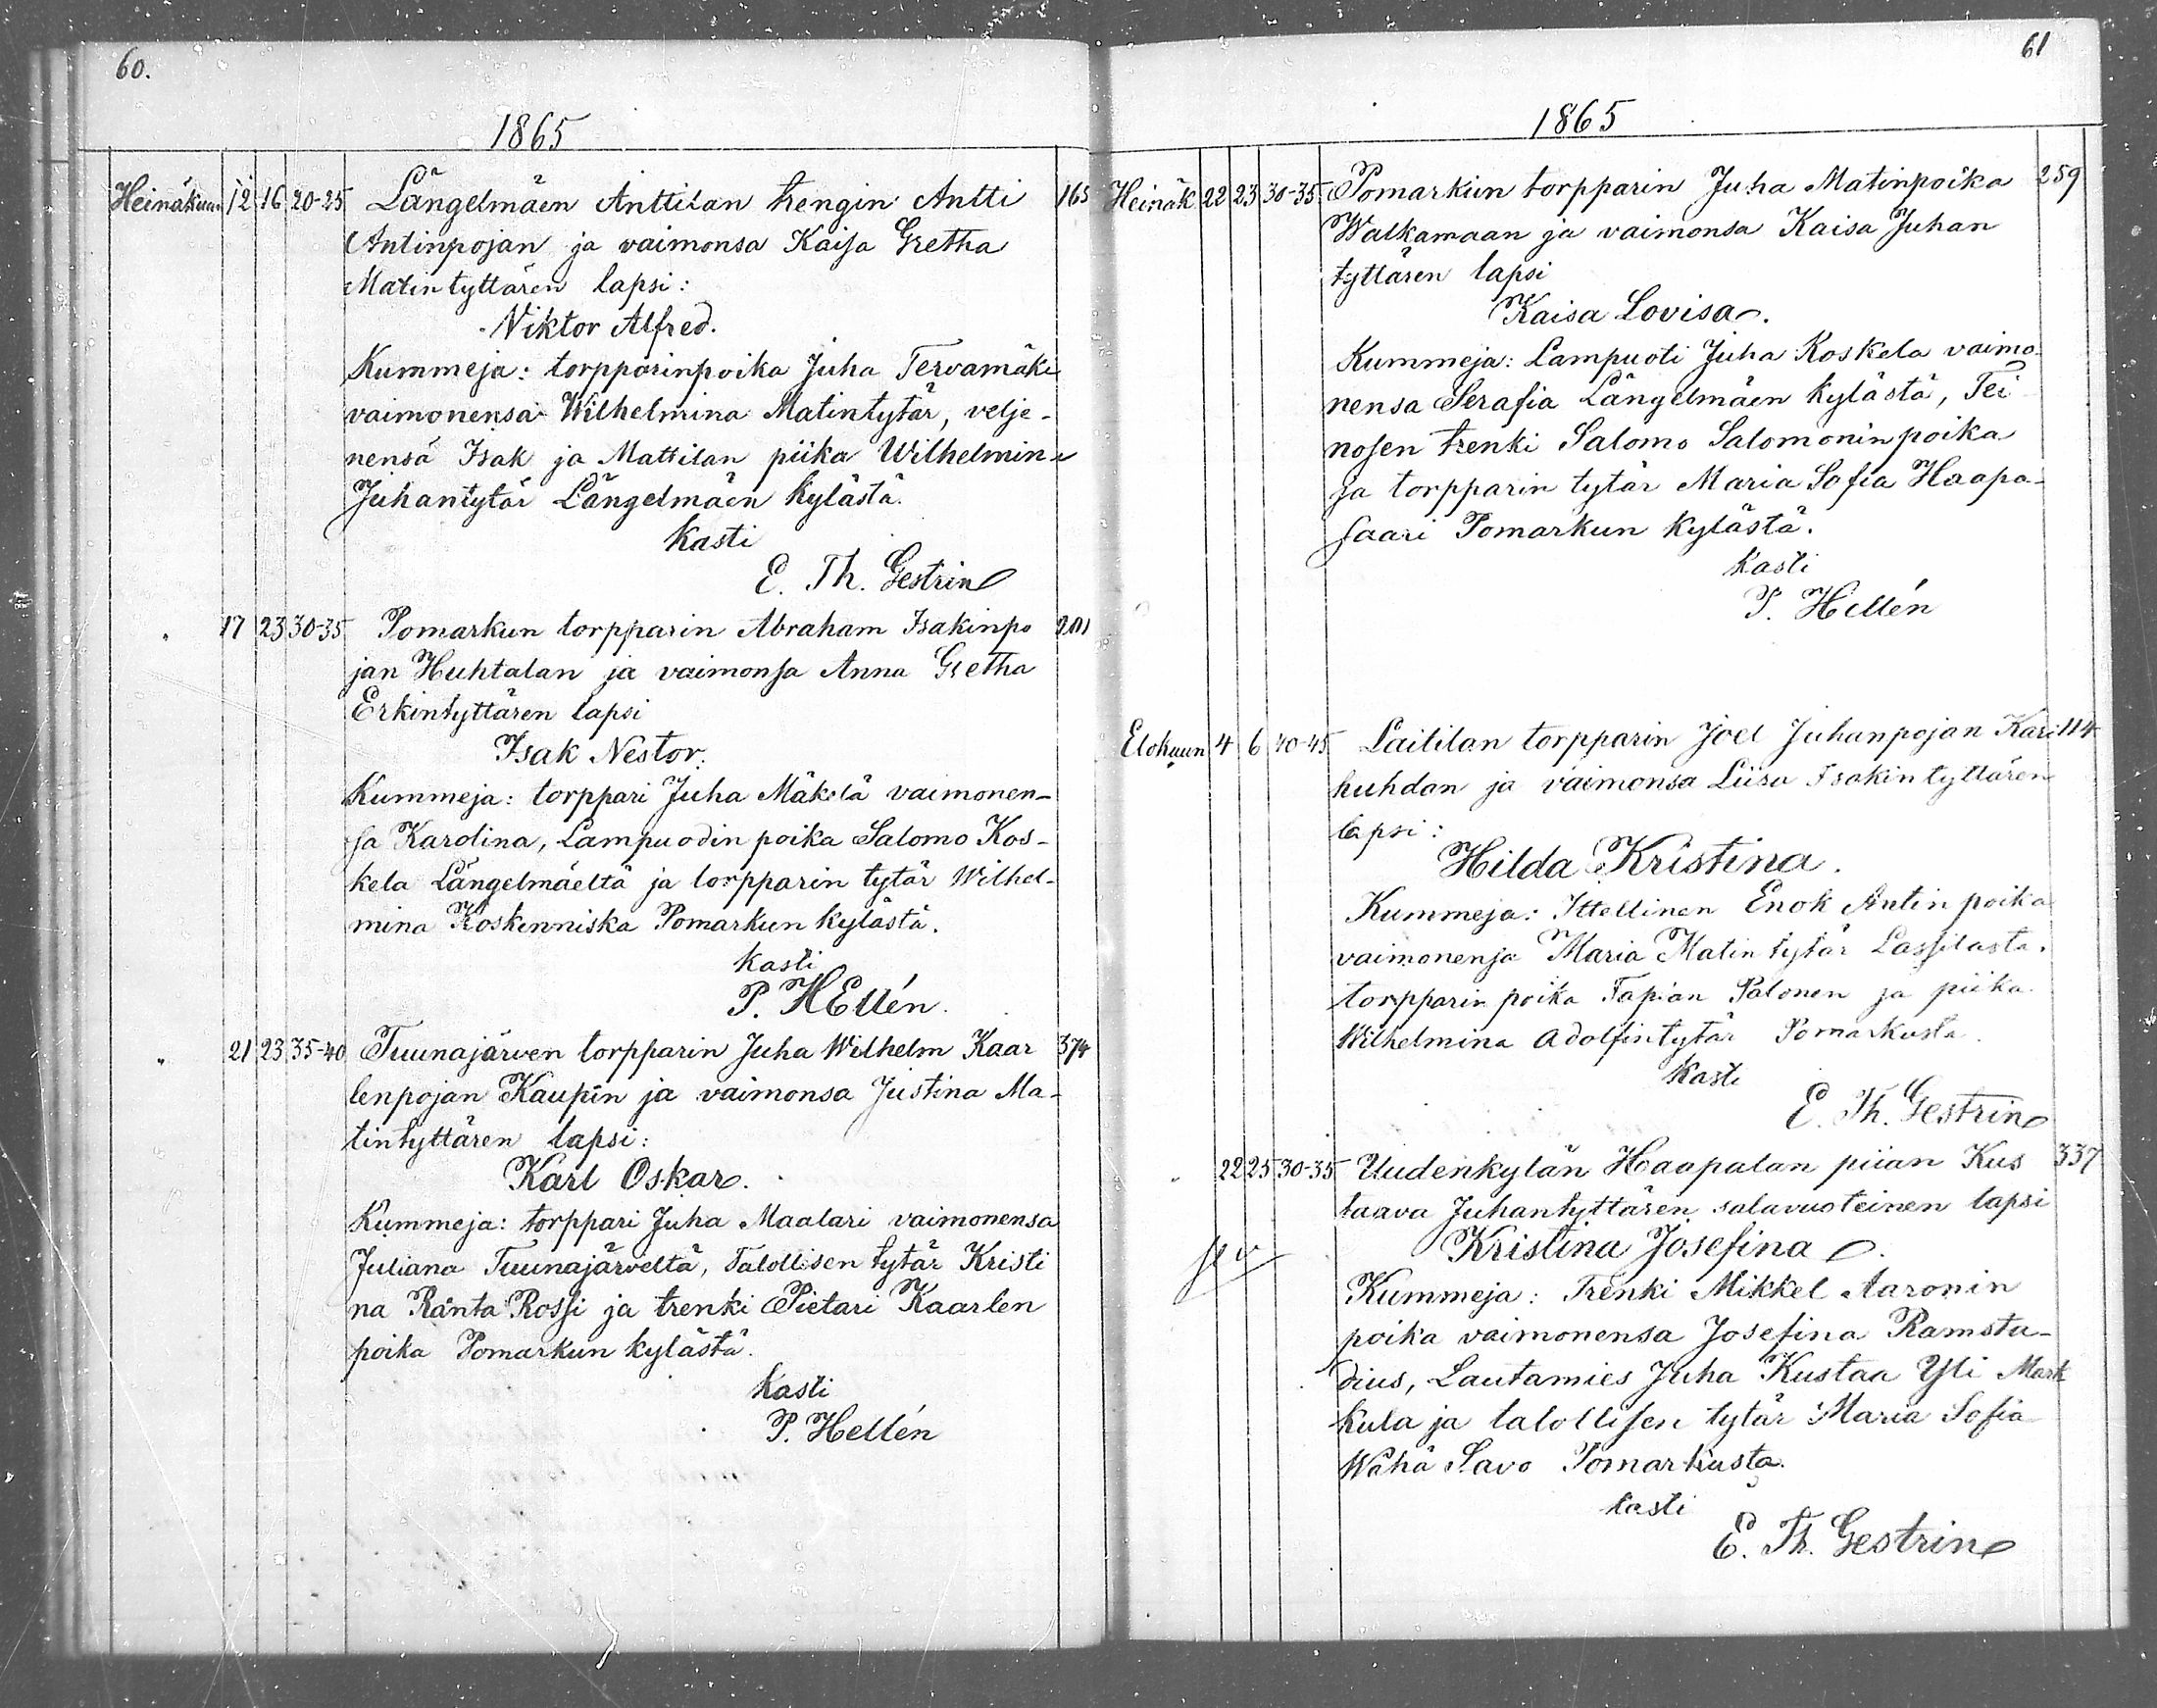 60.
1865
Heinäkuun 12 16 20-25 Längelmäen Anttilan trengin Antti 165
Antinpojan ja vaimonsa Kaisa Gretha
Matintyttären lapsi:
Viktor Alfred.
Kummeja: torpparinpoika Juha Tervamäki
vaimonensa Wilhelmina Matintytär, velje-
nensä Isak ja Mattilan piika Wilhelmina
Juhantytär Längelmäen kylästä.
kasti
E. Th. Gestrin
" 17 23 30-35 Pomarkun torpparin Abraham Isakinpo
jan Huhtalan ja vaimonsa Anna Gretha
Erkintyttären lapsi
Isak Nestor.
Kummeja: torppari Juha Mäkelä vaimonen-
sa Karolina, Lampuodin poika Salomo Kos-
kela Längelmäeltä ja torpparin tytär Wilhel-
mina Koskenniska Pomarkun kylästä.
kasti
P. HEllén.
" 21 23 35-40 Tuunajärven torpparin Juha Wilhelm Kaar 374
lenpojan Kaupin ja vaimonsa Justina Ma-
tintyttären lapsi:
Karl Oskar.
Kummeja: torppari Juha Maalari vaimonensa
Juliana Tuunajärveltä, Talollisen tytär Kristi
na Ranta Rossi ja trenki Pietari Kaarlen
poika Pomarkun kylästä.
kasti
P. Hellén
61
1865
Heinäk 22 23 30-35 Pomarkun torpparin Juha Matinpoika 259
Walkamaan ja vaimonsa Kaisa Juhan
tyttären lapsi
Kaisa Lovisa.
Kummeja: Lampuoti Juha Koskela vaimo-
nensa Serafia Längelmäen kylästä, Tei
nosen trenki Salomo Salomonin poika
ja torpparin tytär Maria Sofia Haapa-
saari Pomarkun kylästä.
kasti
P. Hellén
Elokuun 4 6 40-45 Laitilan torpparin Joel Juhanpojan Kari 114
huhdan ja vaimonsa Liisa Isakintyttären
lapsi:
Hilda Kristina.
Kummeja: Ittellinen Enok Antin poika
vaimonensa Maria Matin tytär Lassilasta.
torpparin poika Fapian Palonen ja piika
Wilhelmina Adolfintytär Pomarkusta.
kasti
E. Th. Gestrin
" 22 25 30-35 Uudenkylän Haapalan piian Kus 337
taava Juhantyttären salavuoteinen lapsi
Kristina Josefina.
Kummeja: Trenki Mikkel Aaronin
poika vaimonensa Josefina Ramsta-
dius, Lautamies Juha Kustaa Yli Mark
kula ja talollisen tytär Maria Sofia
Wähä Savo Pomarkusta.
kasti
E. Th. Gestrin